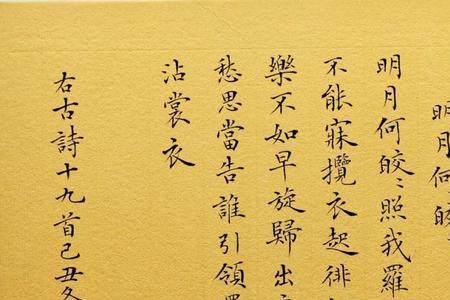 明月何皎
明月何皎〻照我羅
不能寐攬衣起徘
樂不如早旋歸出
愁思當告誰引領
沾裳衣
右古詩十九首己丑冬